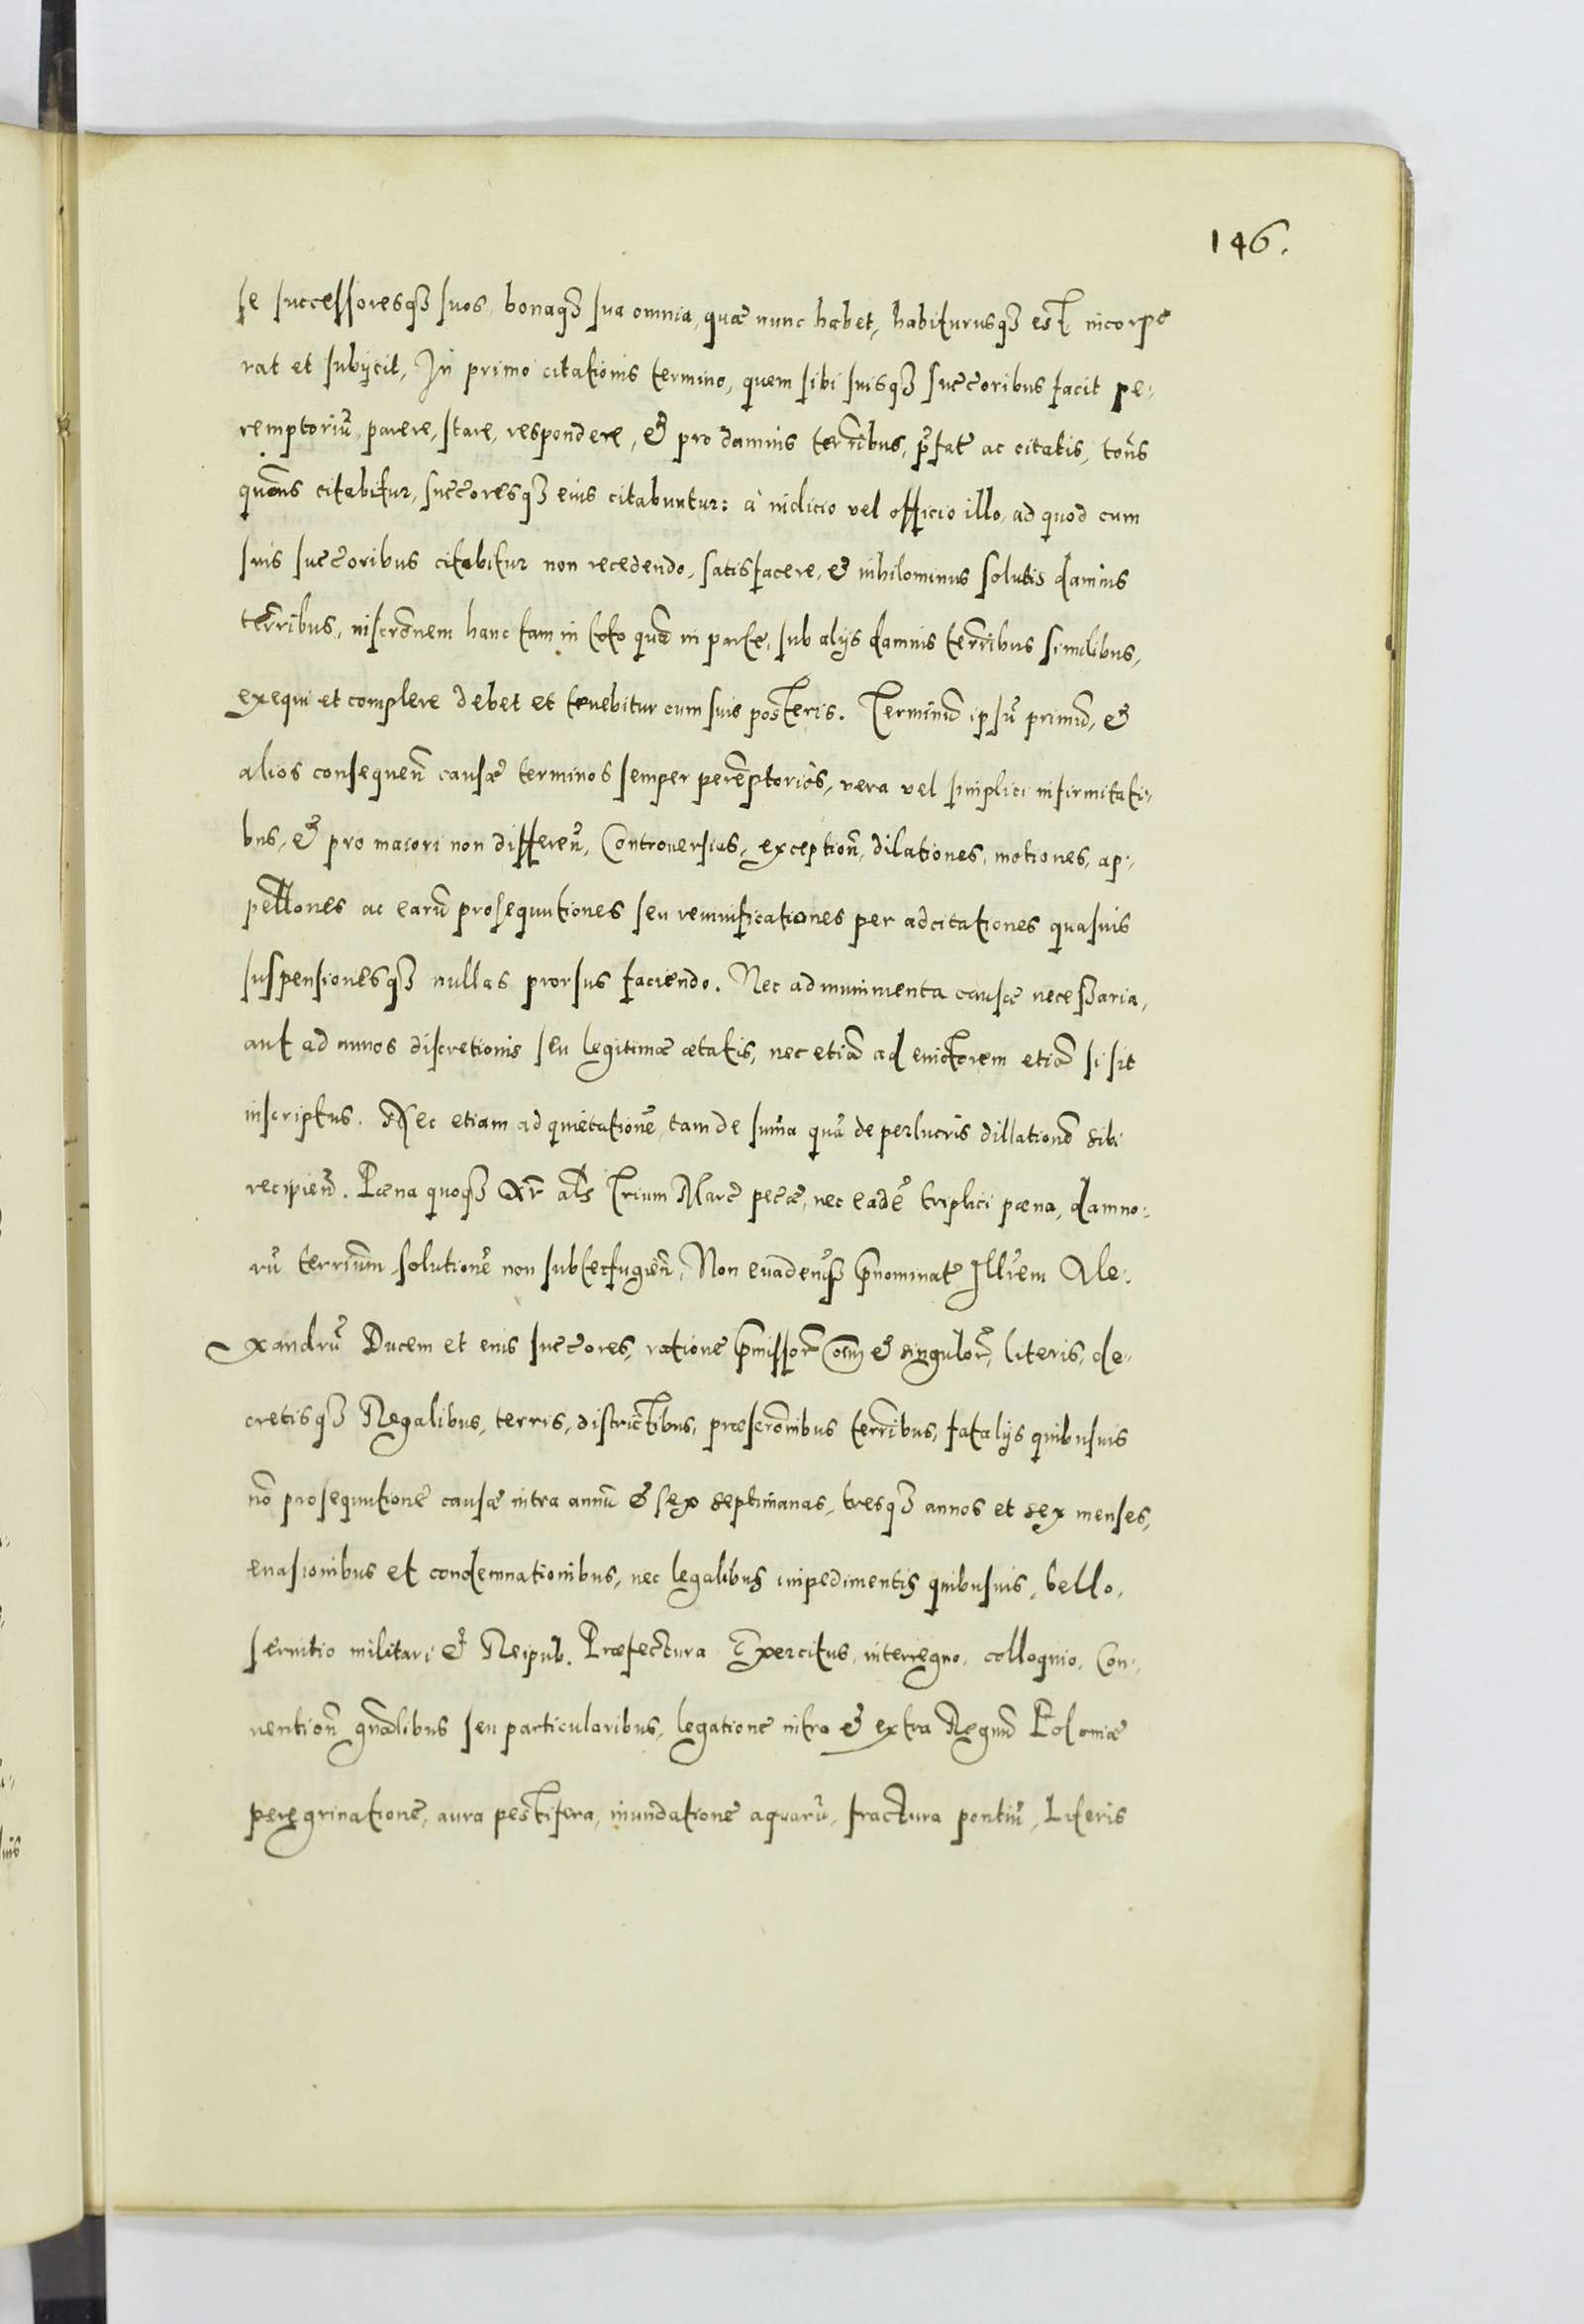 146.
se successoresq₃ suos, bonaq₃ sua omnia, quæ nunc habet, habiturusq₃ est incorpo
rat et subijcit, In primo citationis termino, quem sibi suisq₃ succoribus facit pe:
remptoriũ, parere, stare, respondere, & pro damnis terribus, p̃fat ac citatis, toñs
quoñs citabitur, succoresq₃ eius citabuntur: à iudicio vel officio illo, ad quod cum
suis succoribus citabitur non recedendo, satisfacere, & nihilominus solutis damnis
terribus, inscrõnem hanc tam in toto quã in parte, sub alijs damnis terribus similibus,
exequi et complere debet et tenebitur cum suis posteris. Terminũ ipsũ primũ, &
alios consequeñ causæ terminos semper peremptorios, vera vel simplici infirmitati:
bus, & pro maiori non differeñ, Controuersias, exceptioñ, dilationes, motiones, ap:
pellões ac earũ prosequutiones seu reinnificationes per adcitationes quasuis
suspensionesq₃ nullas prorsus faciendo. Nec ad munimenta causæ necessaria,
aut ad annos discretionis seu legitimæ ætatis, nec etiã ad euictorem etiã si sit
inscriptus. Nec etiam ad quietationẽ, tam de sum̃a quã de perlucris dillationẽ sibi
recipieñ. Pæna quoq₃ Xr̃ als Trium Marc̃ pecc̃, nec eadẽ triplici pæna, damno:
rũ terrium solutionẽ non subterfugieñ, Non euadenq₃ p̃nominat̃ Illr̃em Ale:
xandrũ Ducem et eius succores, ratione p̃missor̃ om̃ & singulor̃, literis, de:
cretisq₃ Regalibus, terris, districtibus, præscrõnibus terribus, fatalijs quibusuis
nõ prosequutione causæ intra annũ & sex septimanas, tresq₃ annos et sex menses,
euasionibus et condemnationibus, nec legalibus impedimentis quibusuis, bello,
seruitio militari & Reipub. Præfectura Exercitus, interregno, colloquio, Con:
uentioñ gñalibus seu particularibus, legatione intra & extra Regnũ Poloniæ
peregrinatione, aura pestifera, inundatione aquarũ, fractura pontiũ, Literis